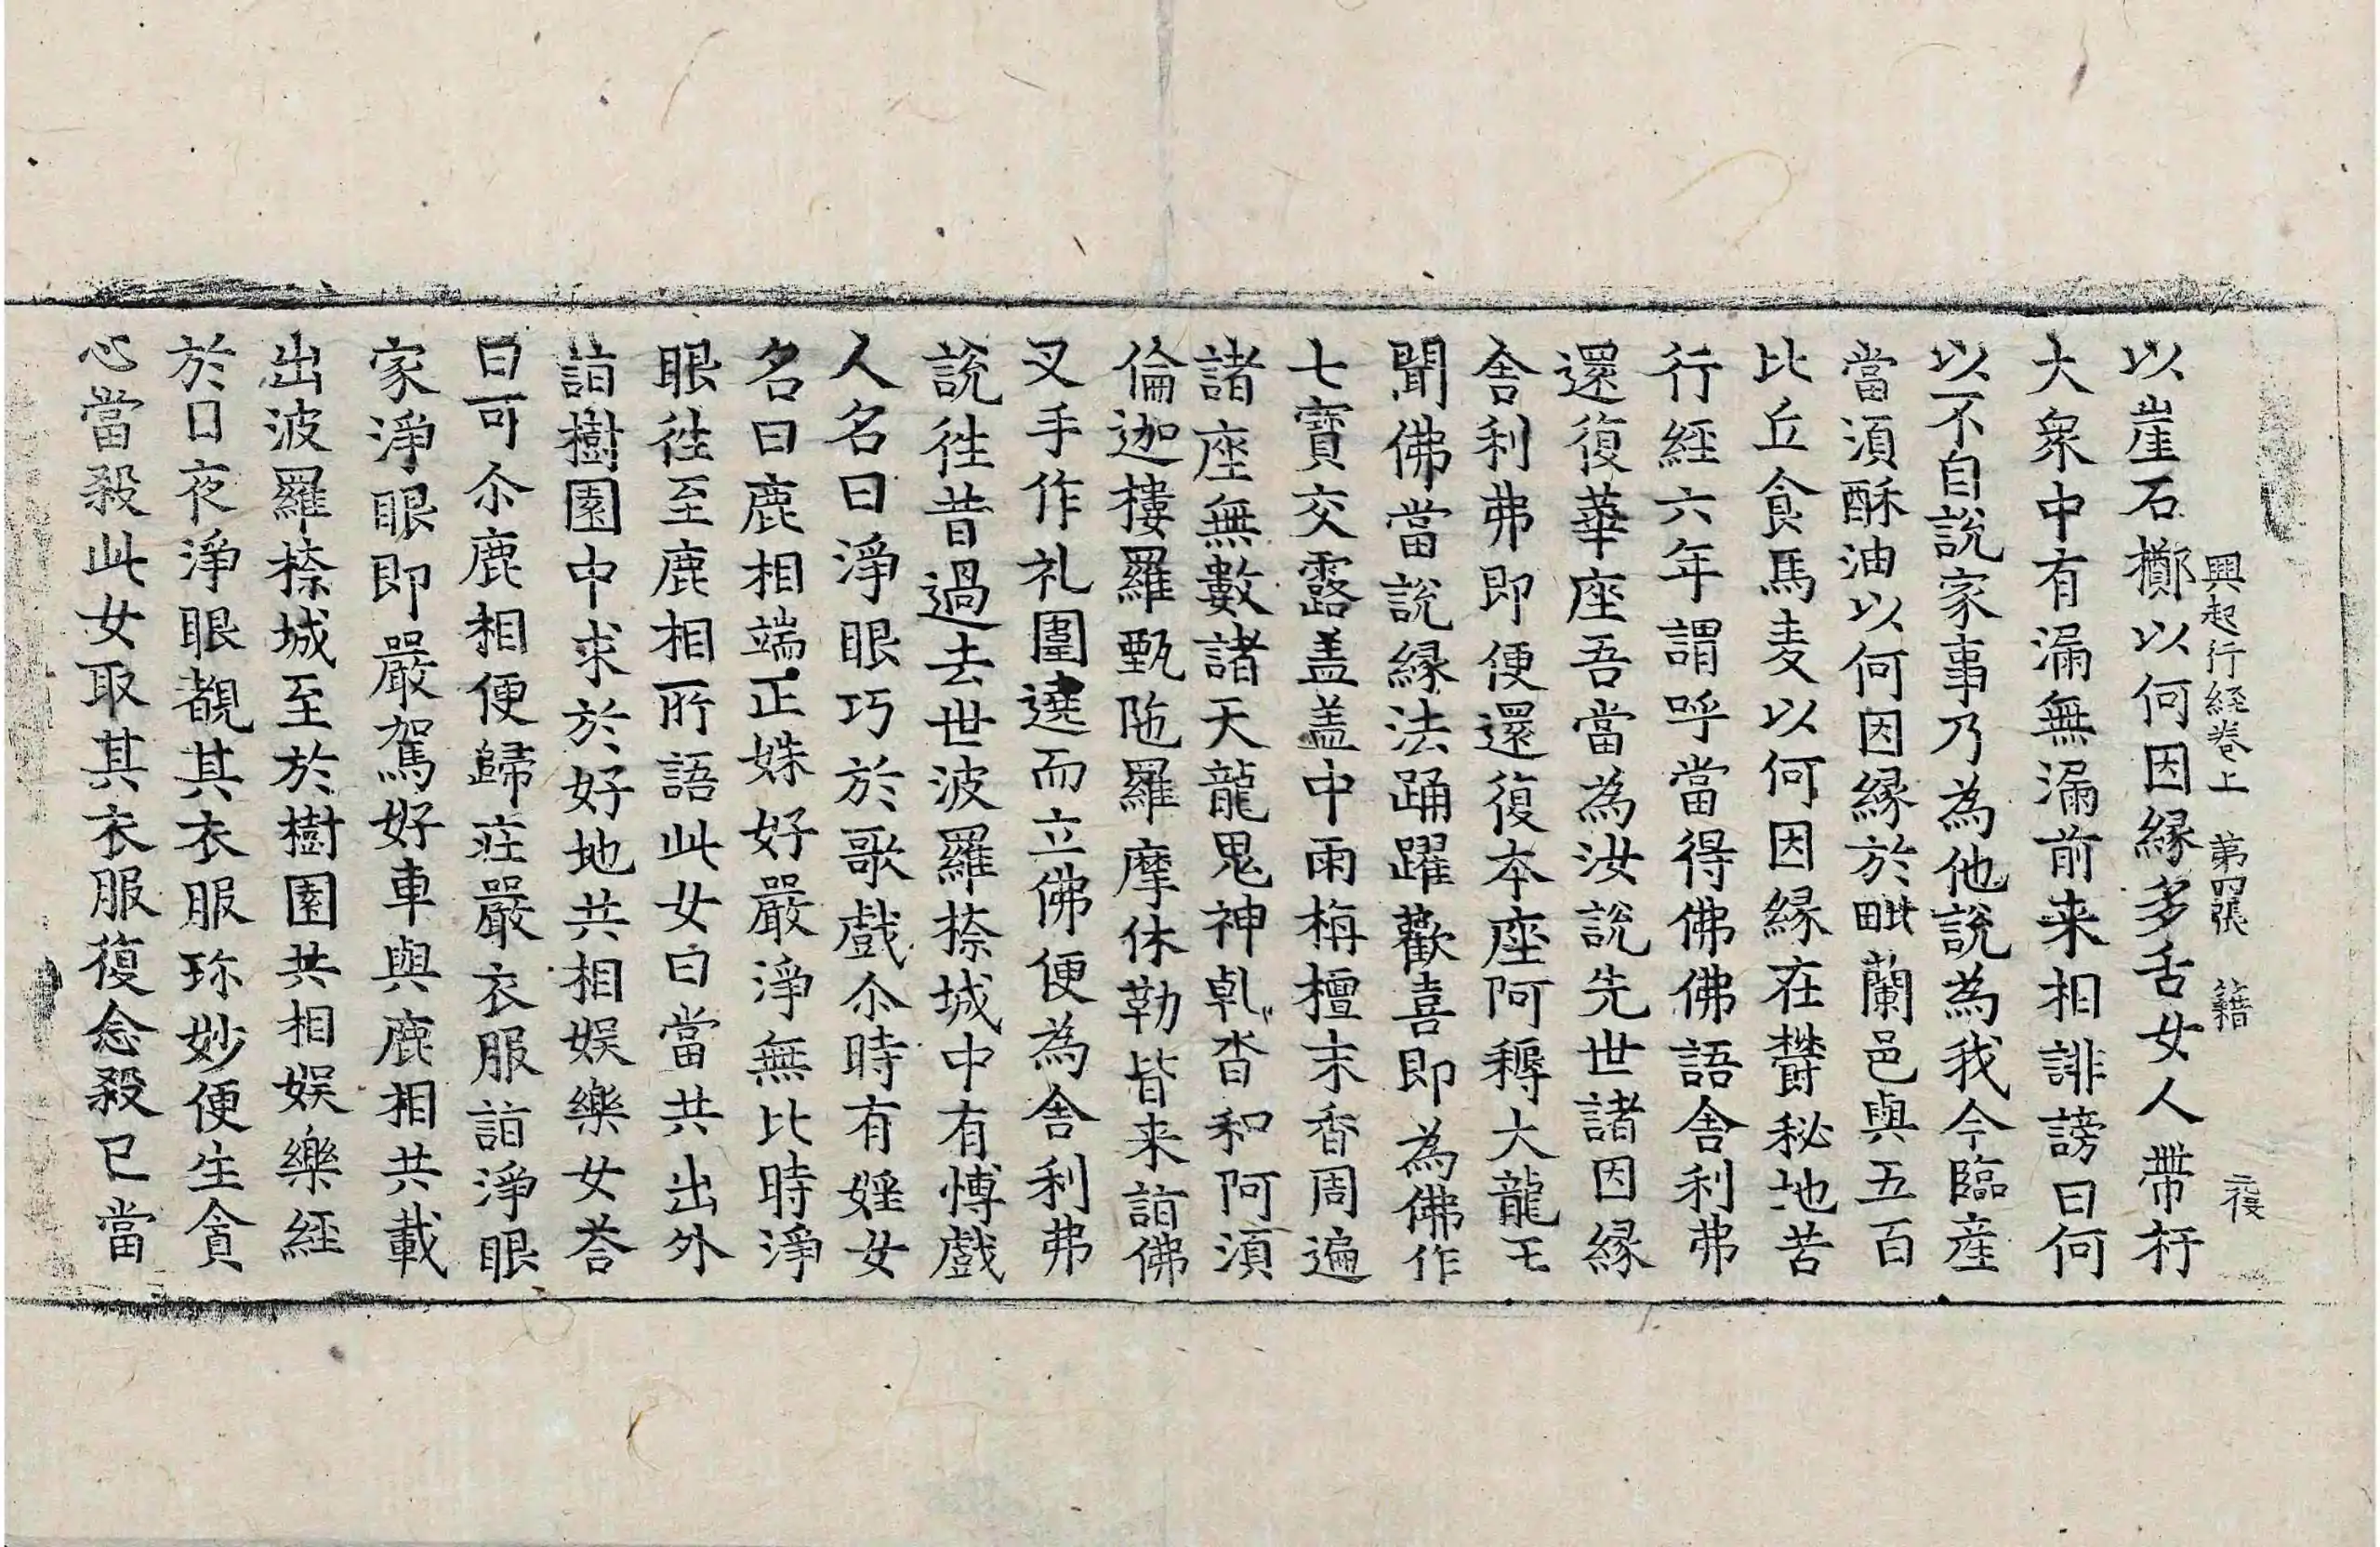 興起行経巻上 第四張 籍 二複
以崖石擲以何因縁多舌女人帶杅
大衆中有漏無漏前来相誹謗曰何
以不自說家事乃為他說為我今臨産
當湏酥油以何因縁於毗蘭邑與五百
比丘食馬麦以何因縁在欝秘地苦
行経六年謂呼當得佛佛語舎利弗
還復華座吾當為汝說先世諸因縁
舎利弗即便還復夲座阿耨大龍王
聞佛當說縁法踊躍歡喜即為佛作
七寶交露盖盖中雨栴檀末香周遍
諸座無數諸天龍鬼神乹沓和阿湏
倫迦樓羅甄陁羅摩休勒皆来詣佛
叉手作礼圍遶而立佛便為舎利弗
說徃昔過去世波羅㮈城中有博戲
人名曰淨眼巧於歌戲尒時有婬女
名曰鹿相端正姝好嚴淨無比時淨
眼徃至鹿相所語此女曰當共出外
詣樹園中求於好地共相娛樂女荅
曰可尒鹿相便歸莊嚴衣服詣淨眼
家淨眼即嚴駕好車與鹿相共載
出波羅㮈城至於樹園共相娛樂経
於日夜淨眼覩其衣服珎妙便生貪
心當殺此女取其衣服復念殺已當